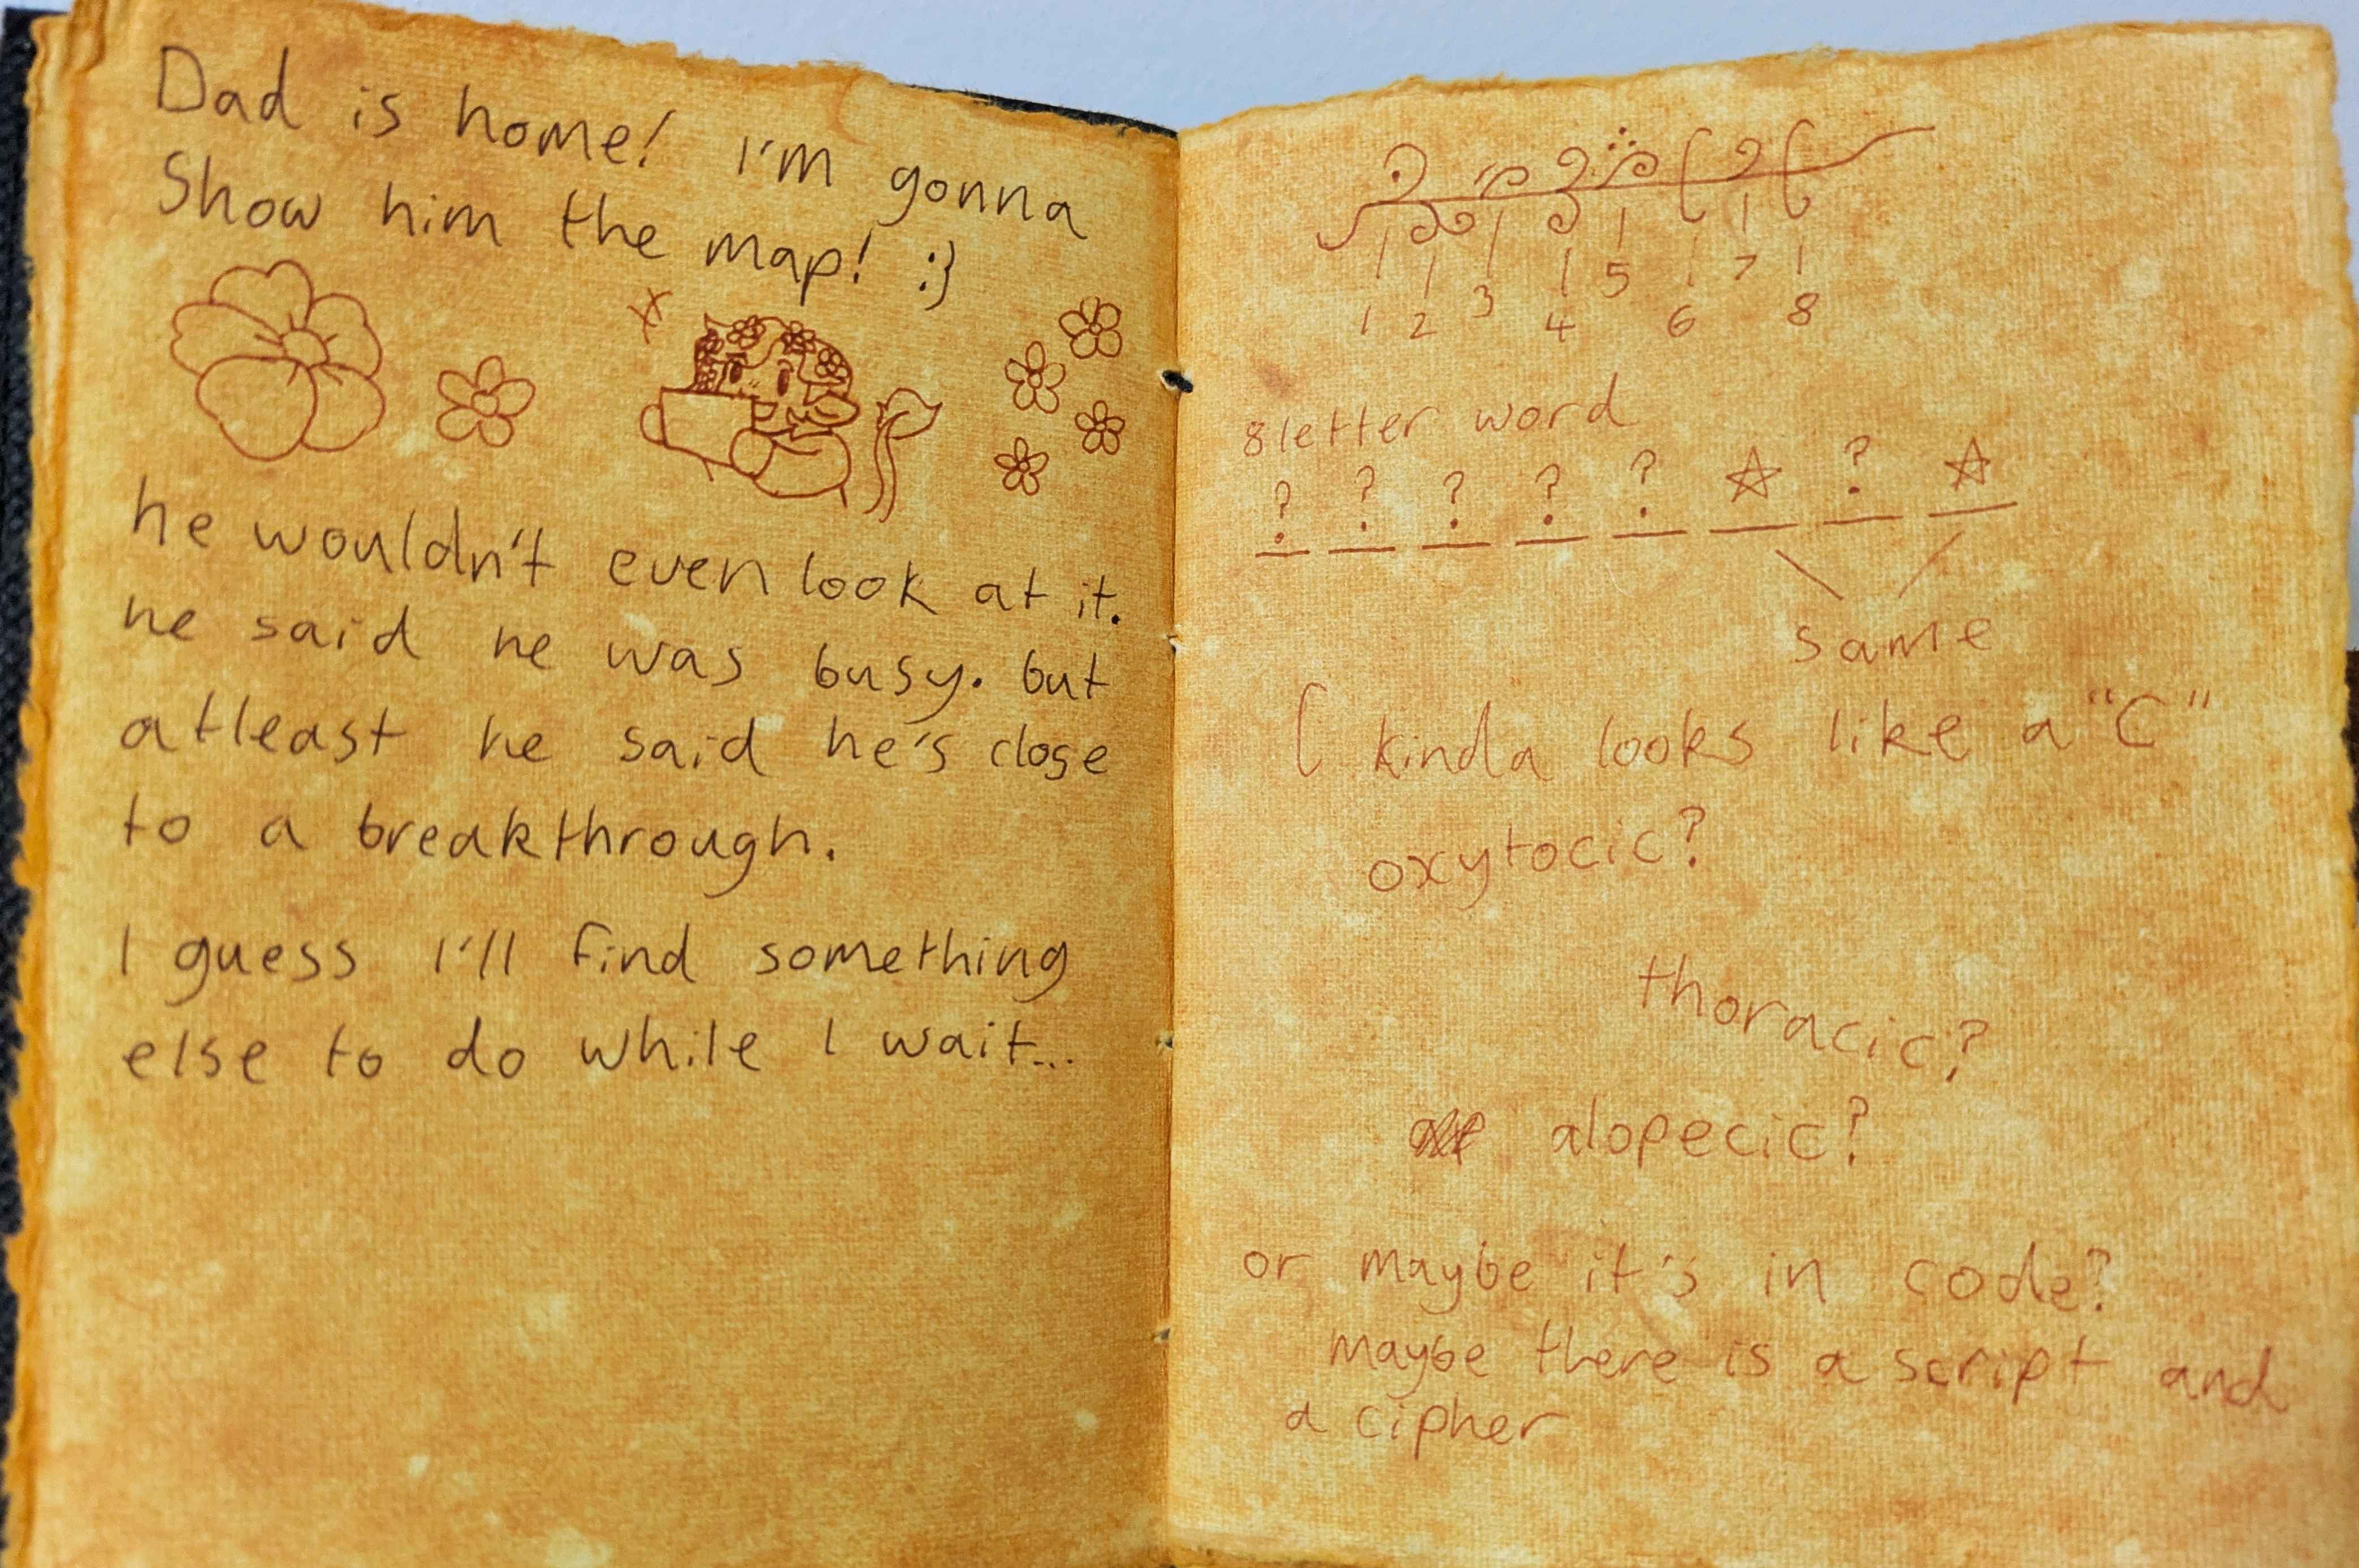 Dad is home! I'm gonna
Show him the map! :}
he wouldn't even look at it.
he said he was busy. but
atleast he said he's close
to a breakthrough.
I guess I'll find something
else to do while I wait...
1 2 3 4 5 6 7 8
8 letter word
? ? ? ? ? ☆ ? ☆
same
( kinda looks like a "C"
oxytocic?
thoracic?
alopecic?
or maybe it's in code?
maybe there is a script and
a cipher